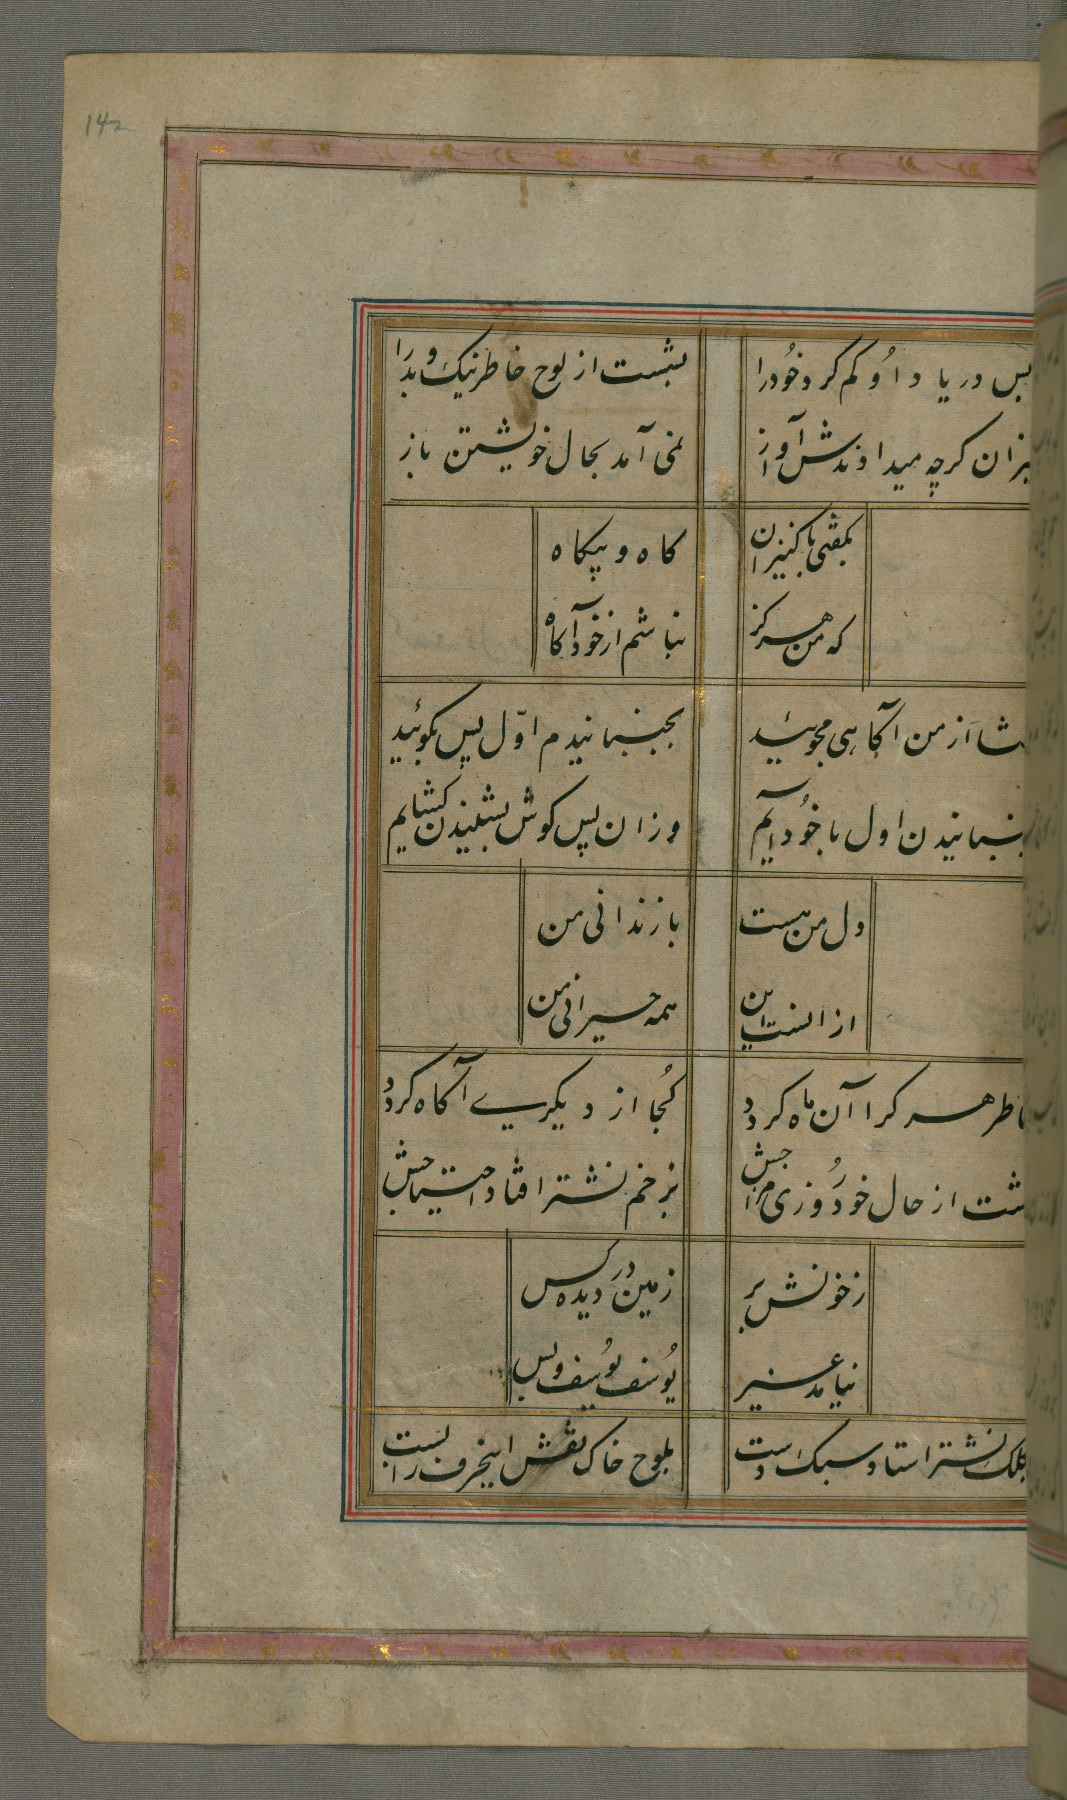 142
بس در یاد او کم کرد خود را بشست از لوح خاطر نیک و بد را
یزان کرچه میدادندش آواز نمی آمد بحال خویشتن باز
بکفتی با کنیزان کاه و بیکاه
که من هرکز نباشم از خود آکاه
از من آکاهی مجوئید بجنبانیدم اول پس بکوئید
نبانیدن اول با خود آیم وزان پس کوش بشنیدن کشایم
دل من هست با زندانی من
از انست این همه حیرانی من
اطر هر کرا آن ماه کردد کجا از دیکری آکاه کردد
شت از حال خود روزی مزاجش بزخم نشتر افتاد احتیاجش
ز خونش بر زمین در دیده کس
نیامد غیر یوسف یوسف و بس
بکلک نشتر استاد سبک دست بلوح خاک نقش اینحرف را بست